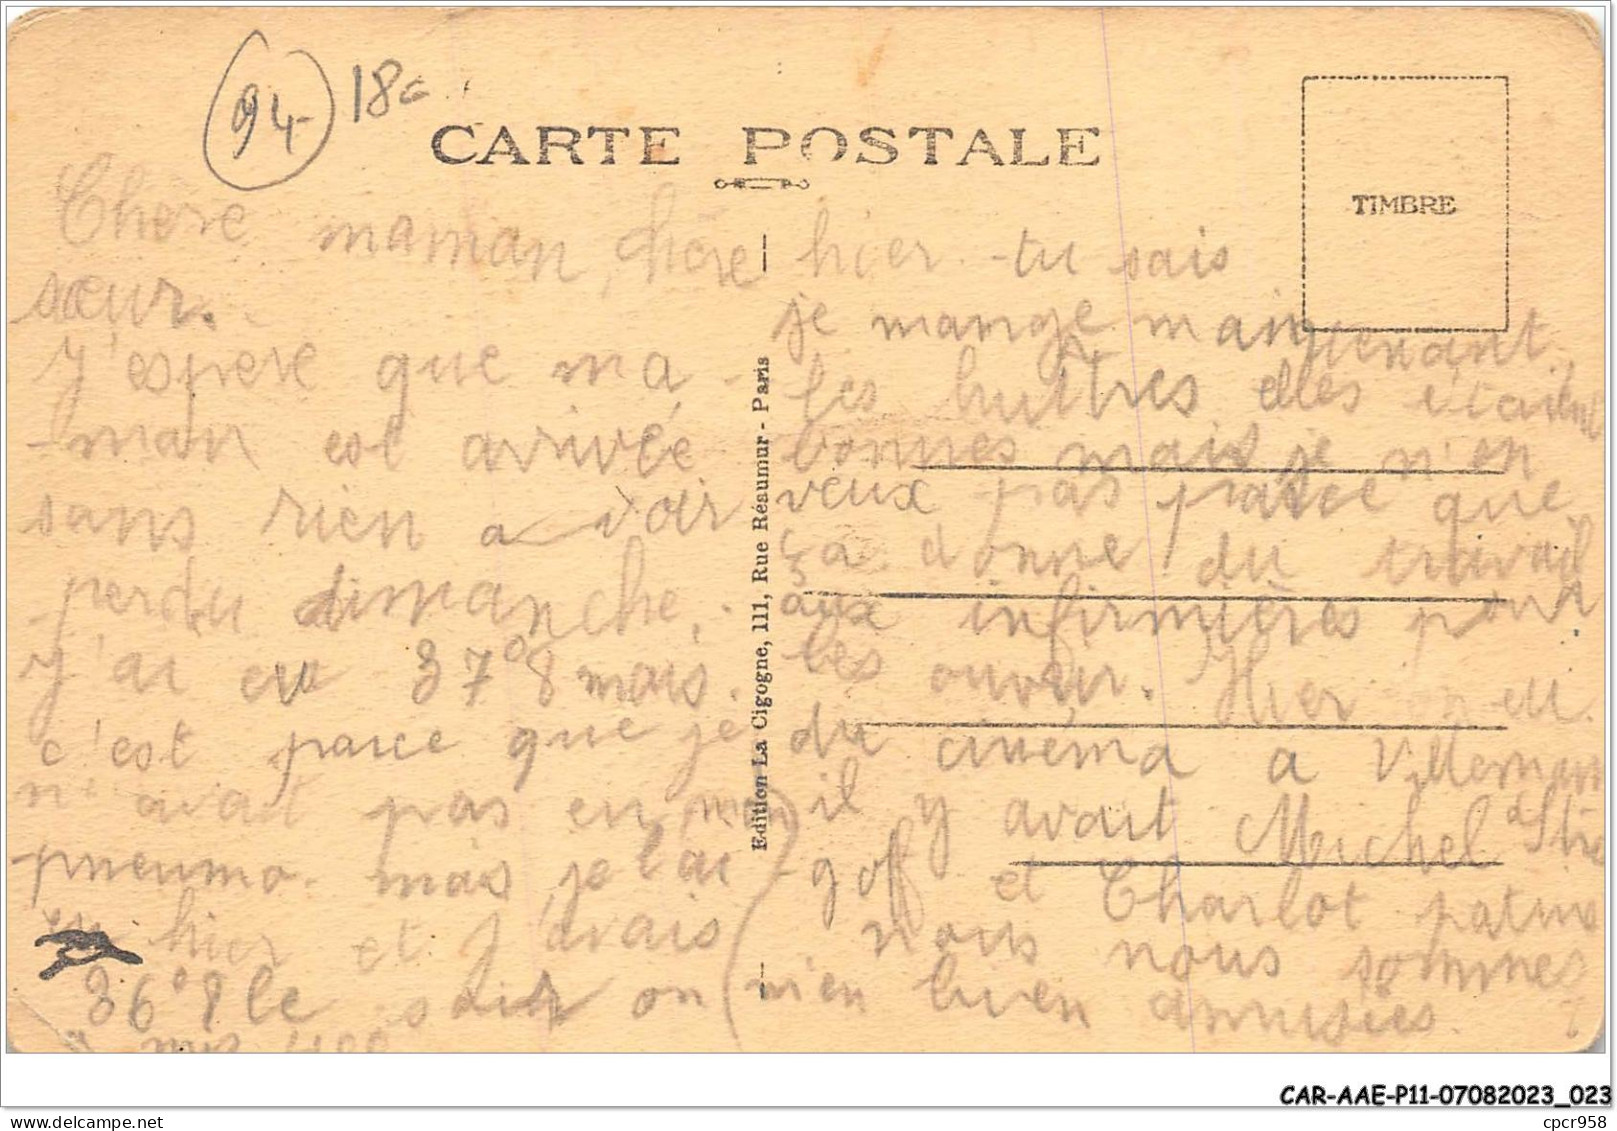 94 18c
CARTE POSTALE
TIMBRE
Chere maman, chère
sœur.
J'espere que ma
-man est arrivée
sans rien a voir
perdu dimanche.
J'ai eu 37°8 mais
c'est parce que je
n'avait pas en mon
pneumo. mais je l'ai
eu hier et j'avais
36°8 le soir on
m'en
Edition La Cigogne, 111, Rue Réaumur - Paris
hier. tu sais
je mange maintenant
les huîtres elles étaient
bonnes mais je n'en
veux pas parce que
ça donne du travail
aux infirmières pour
les ouvrir. Hier on eu
du cinéma a Villemain
il y avait Michel Stro
goff et Charlot patine
nous nous sommes
bien amusées.
CAR-AAE-P11-07082023_023
cpcr958